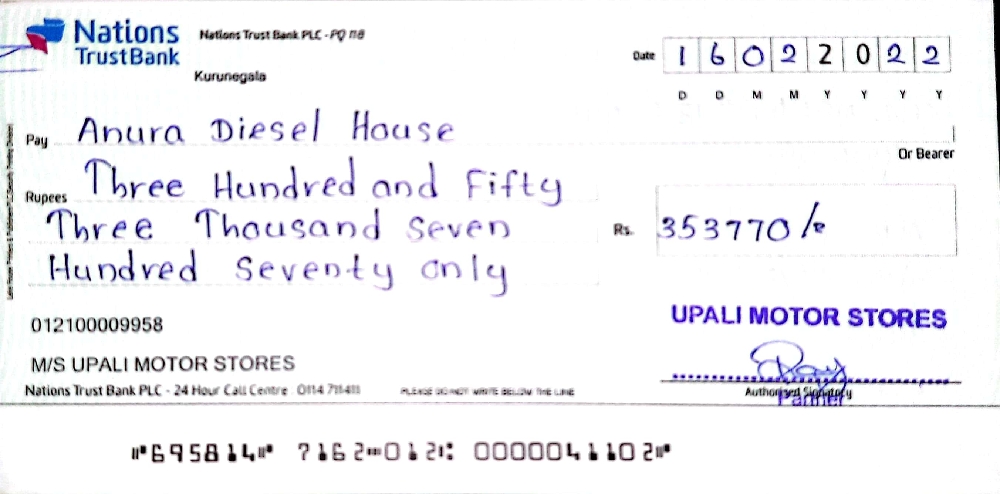 Nations
TrustBank
Nations Trust Bank PLC - PQ 118
Kurunegala
Date 1 6 0 2 2 0 2 2
D D M M Y Y Y Y
Pay Anura Diesel House
Or Bearer
Rupees Three Hundred and Fifty
Three Thousand Seven
Hundred Seventy only
Rs. 353770/=
012100009958
UPALI MOTOR STORES
M/S UPALI MOTOR STORES
Nations Trust Bank PLC - 24 Hour Call Centre 0114 711411
PLEASE DO NOT WRITE BELOW THE LINE
Authorised Signatory
Partner
⑈695814⑈ 7162⑉012⑆ 0000041102⑈